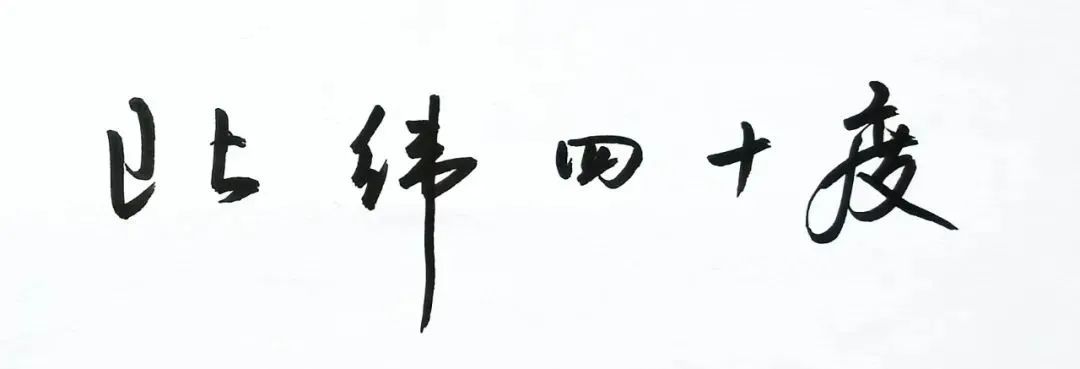 北纬四十度